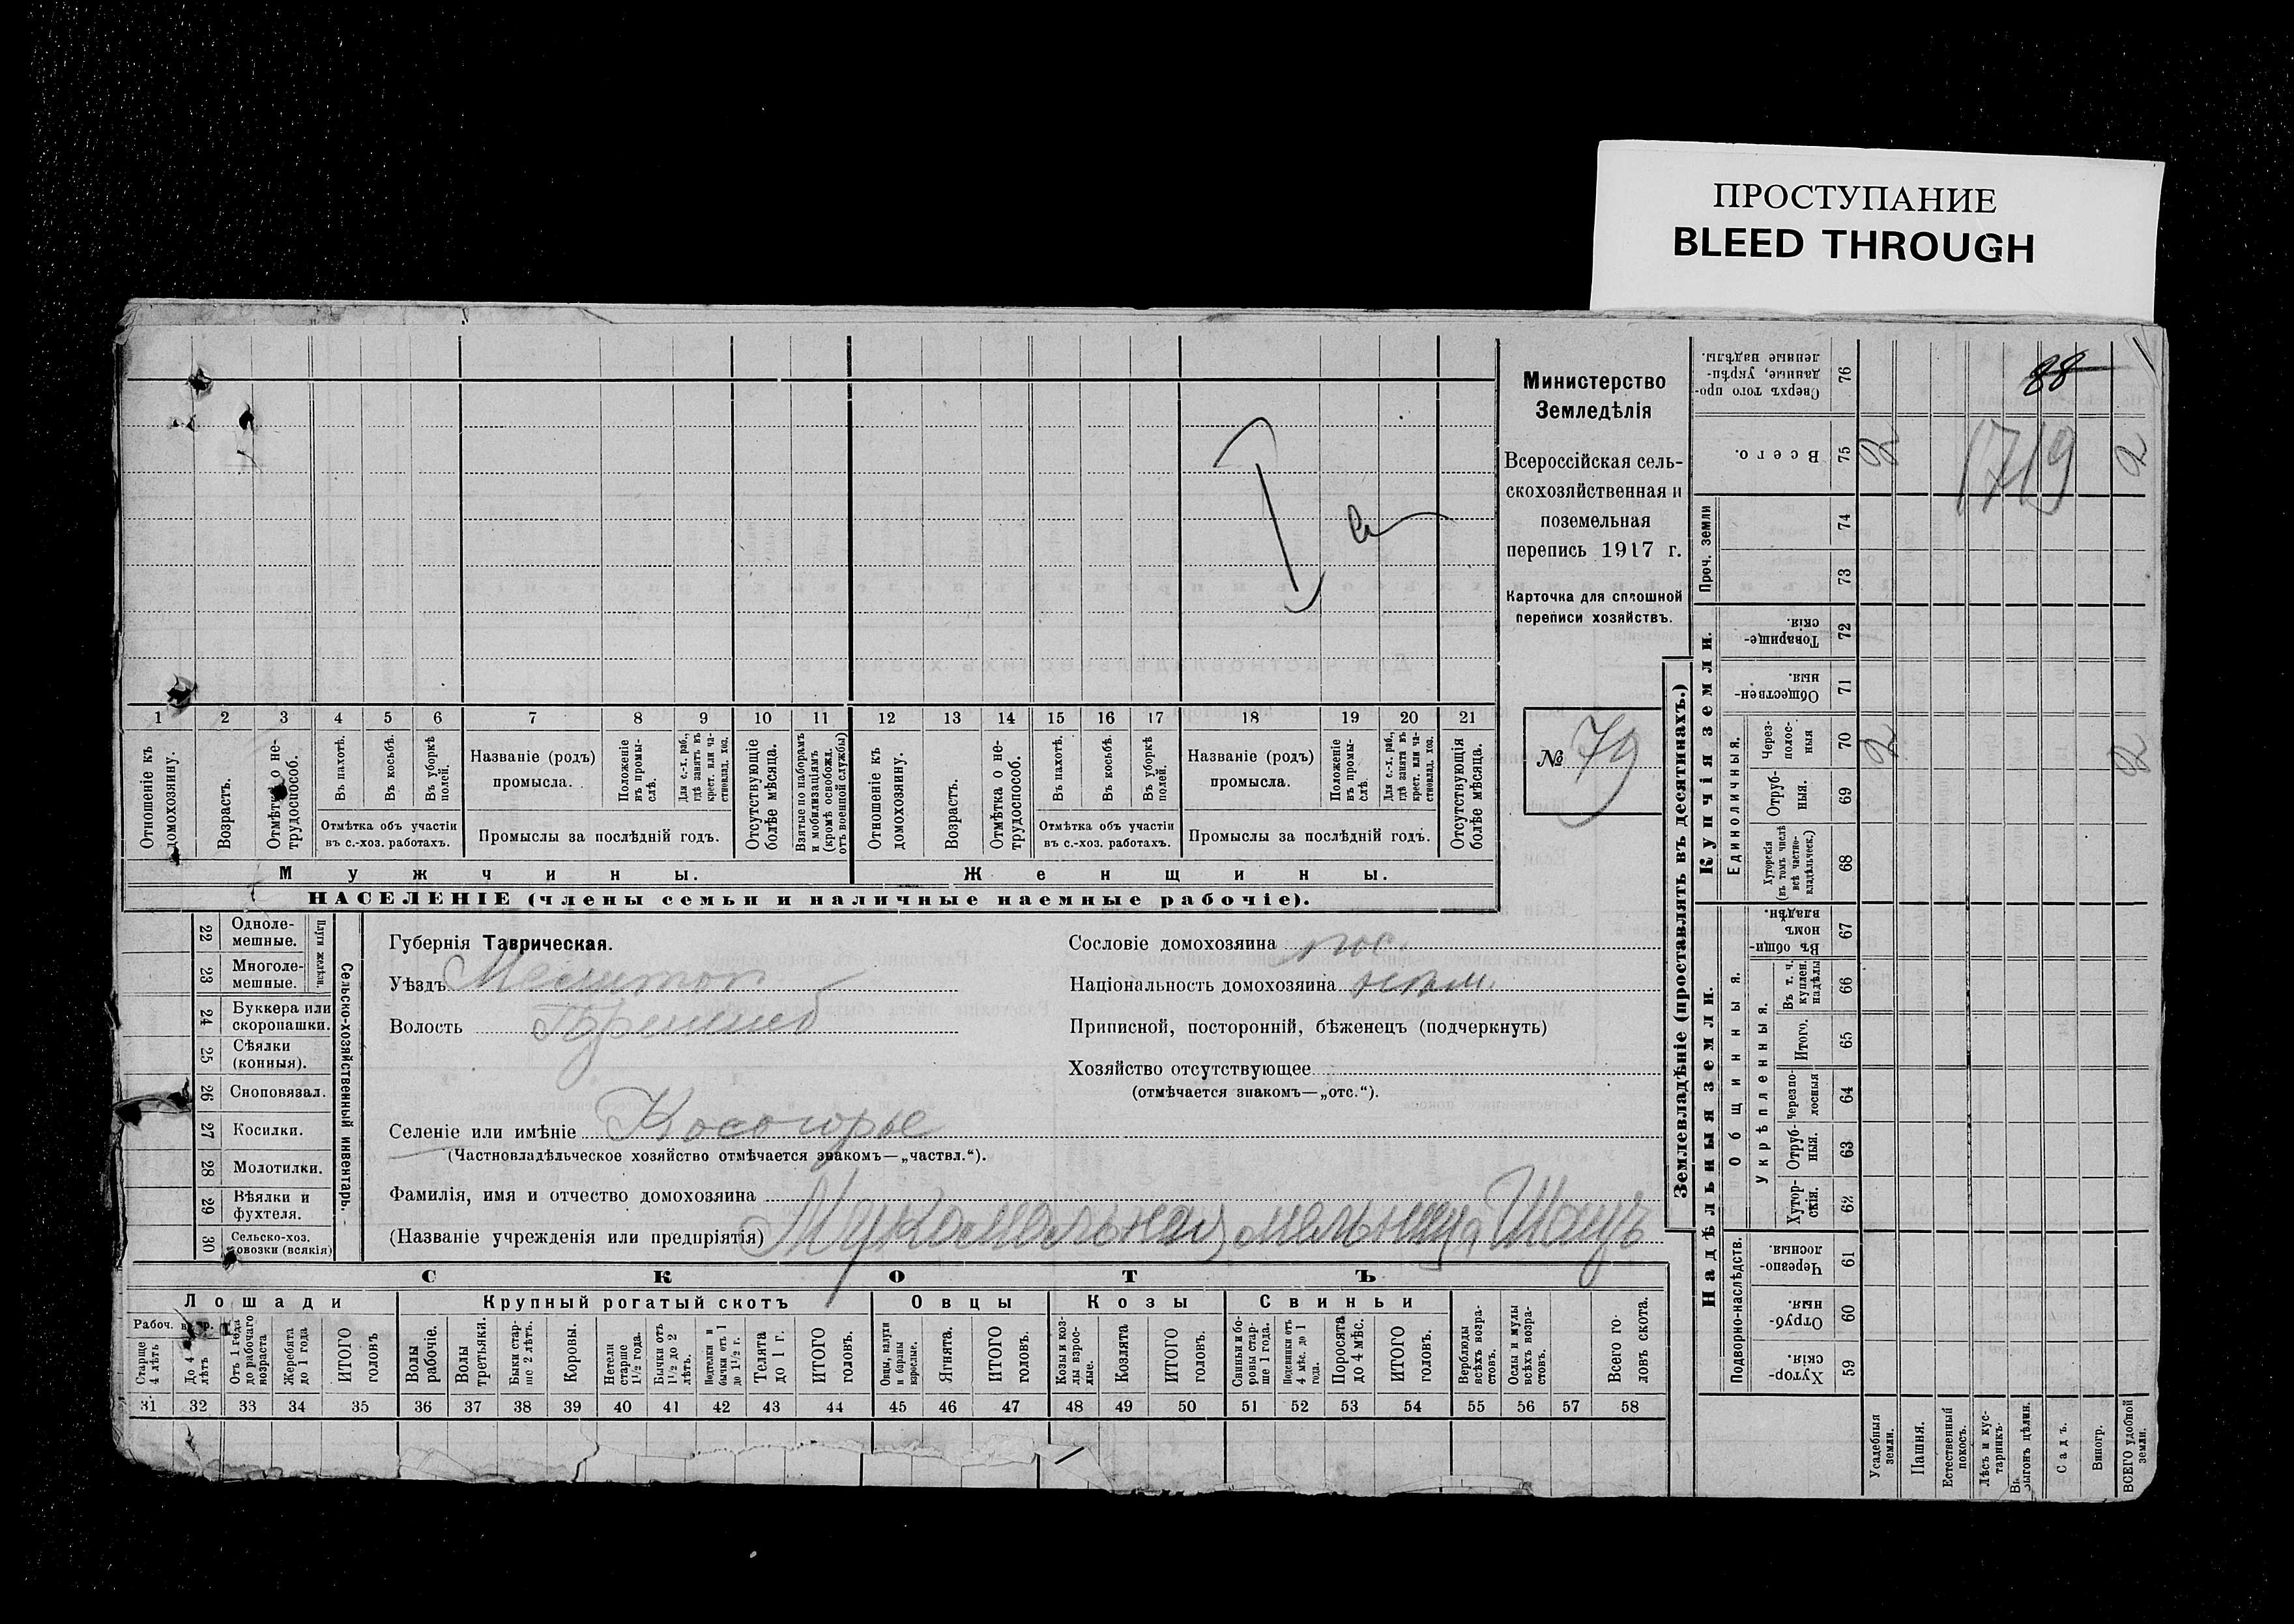 ПРОСТУПАНИЕ
BLEED THROUGH
Министерство
Земледѣлія
Всероссійская сель-
скохозяйственная и
поземельная
перепись 1917 г.
Карточка для сплошной
переписи хозяйствъ.
№ 79
1 2 3 4 5 6 7 8 9 10 11 12 13 14 15 16 17 18 19 20 21
Отношеніе къ домохозяину.
Возрастъ.
Отмѣтка о не-трудоспособ.
Въ пахотѣ.
Въ косьбѣ.
Въ уборкѣ полей.
Отмѣтка объ участіи
въ с.-хоз. работахъ.
Названіе (родъ)
промысла.
Положеніе въ промы-слѣ.
Для с.-х. раб., гдѣ занятъ въ крест. или ча-стновлад. хоз.
Промыслы за послѣдній годъ.
Отсутствующіе болѣе мѣсяца.
Взятые по наборамъ и мобилизаціямъ (кромѣ освобожд. отъ военной службы)
Отношеніе къ домохозяину.
Возрастъ.
Отмѣтка о не-трудоспособ.
Въ пахотѣ.
Въ косьбѣ.
Въ уборкѣ полей.
Отмѣтка объ участіи
въ с.-хоз. работахъ.
Названіе (родъ)
промысла.
Положеніе въ промы-слѣ
Для с.-х. раб., гдѣ занята въ крест. или ча-стновлад. хоз.
Промыслы за послѣдній годъ.
Отсутствующія болѣе мѣсяца.
Мужчины.
Женщины.
НАСЕЛЕНІЕ (члены семьи и наличные наемные рабочіе).
Сельско-хозяйственный инвентарь.
Плуги желѣзн.
22 Одноле-мешные.
23 Многоле-мешные.
24 Буккера или скоропашки.
25 Сѣялки (конныя).
26 Сноповязал.
27 Косилки.
28 Молотилки.
29 Вѣялки и фухтеля.
30 Сельско-хоз. повозки (всякія)
Губернія Таврическая.
Уѣздъ Мелитоп
Волость
Селеніе или имѣніе Косогорье
(Частновладѣльческое хозяйство отмѣчается знакомъ—„частвл.“).
Фамилія, имя и отчество домохозяина
(Названіе учрежденія или предпріятія) Мукомольная мельница Шацъ
Сословіе домохозяина пос.
Національность домохозяина нѣм.
Приписной, посторонній, бѣженецъ (подчеркнуть)
Хозяйство отсутствующее
(отмѣчается знакомъ—„отс.“).
СКОТЪ
Лошади
Крупный рогатый скотъ
Овцы
Козы
Свиньи
Рабоч.
Старше 4 лѣтъ
До 4 лѣтъ
Отъ 1 года до рабочаго возраста
Жеребята до 1 года
ИТОГО головъ
Волы рабочіе.
Волы третьяки.
Быки стар-ше 2 лѣтъ.
Коровы.
Нетели старше 1½ года.
Бычки отъ 1½ до 2 лѣтъ.
Подтелки и бычки отъ 1 до 1½ г.
Телята до 1 г.
ИТОГО головъ.
Овцы, валухи и бараны взрослые.
Ягнята.
ИТОГО головъ.
Козы и коз-лы взрос-лые.
Козлята
ИТОГО головъ.
Свиньи и бо-ровы стар-ше 1 года.
Подсвинки отъ 4 мѣс. до 1 года.
Поросята до 4 мѣс.
ИТОГО головъ.
Верблюды всѣхъ возра-стовъ.
Ослы и мулы всѣхъ возра-стовъ.
Всего го-ловъ скота.
31 32 33 34 35 36 37 38 39 40 41 42 43 44 45 46 47 48 49 50 51 52 53 54 55 56 57 58
Землевладѣніе (проставлять въ десятинахъ.)
Купчія земли.
Надѣльныя земли.
Проч. земли
Единоличныя.
Общинныя.
Укрѣпленныя.
Подворно-наслѣдств.
Сверхъ того про-данные, укрѣп-ленные надѣлы. 76
88
Всего. 75 2 1719 2
74
73
Товарище-скія. 72
Обществен-ныя. 71
Через-полос-ныя 70 2 2
Отруб-ныя. 69
Хуторскія (въ томъ числѣ всѣ частно-владѣльческ.) 68
Въ общин-номъ владѣн. 67
Въ т. ч. куплен. надѣлы 66
Итого. 65
Черезпо-лосныя 64
Отруб-ныя. 63
Хутор-скія. 62
Черезпо-лосныя. 61
Отруб-ныя. 60
Хутор-скія. 59
Усадебныя земли.
Пашня.
Естественный покосъ.
Лѣсъ и кус-тарникъ.
выгонъ цѣлин.
Садъ.
Виногр.
ВСЕГО удобной земли.